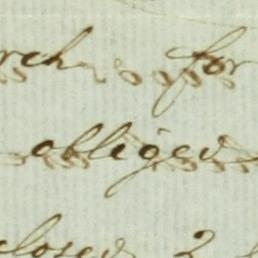 rch for
obliged
closed 2